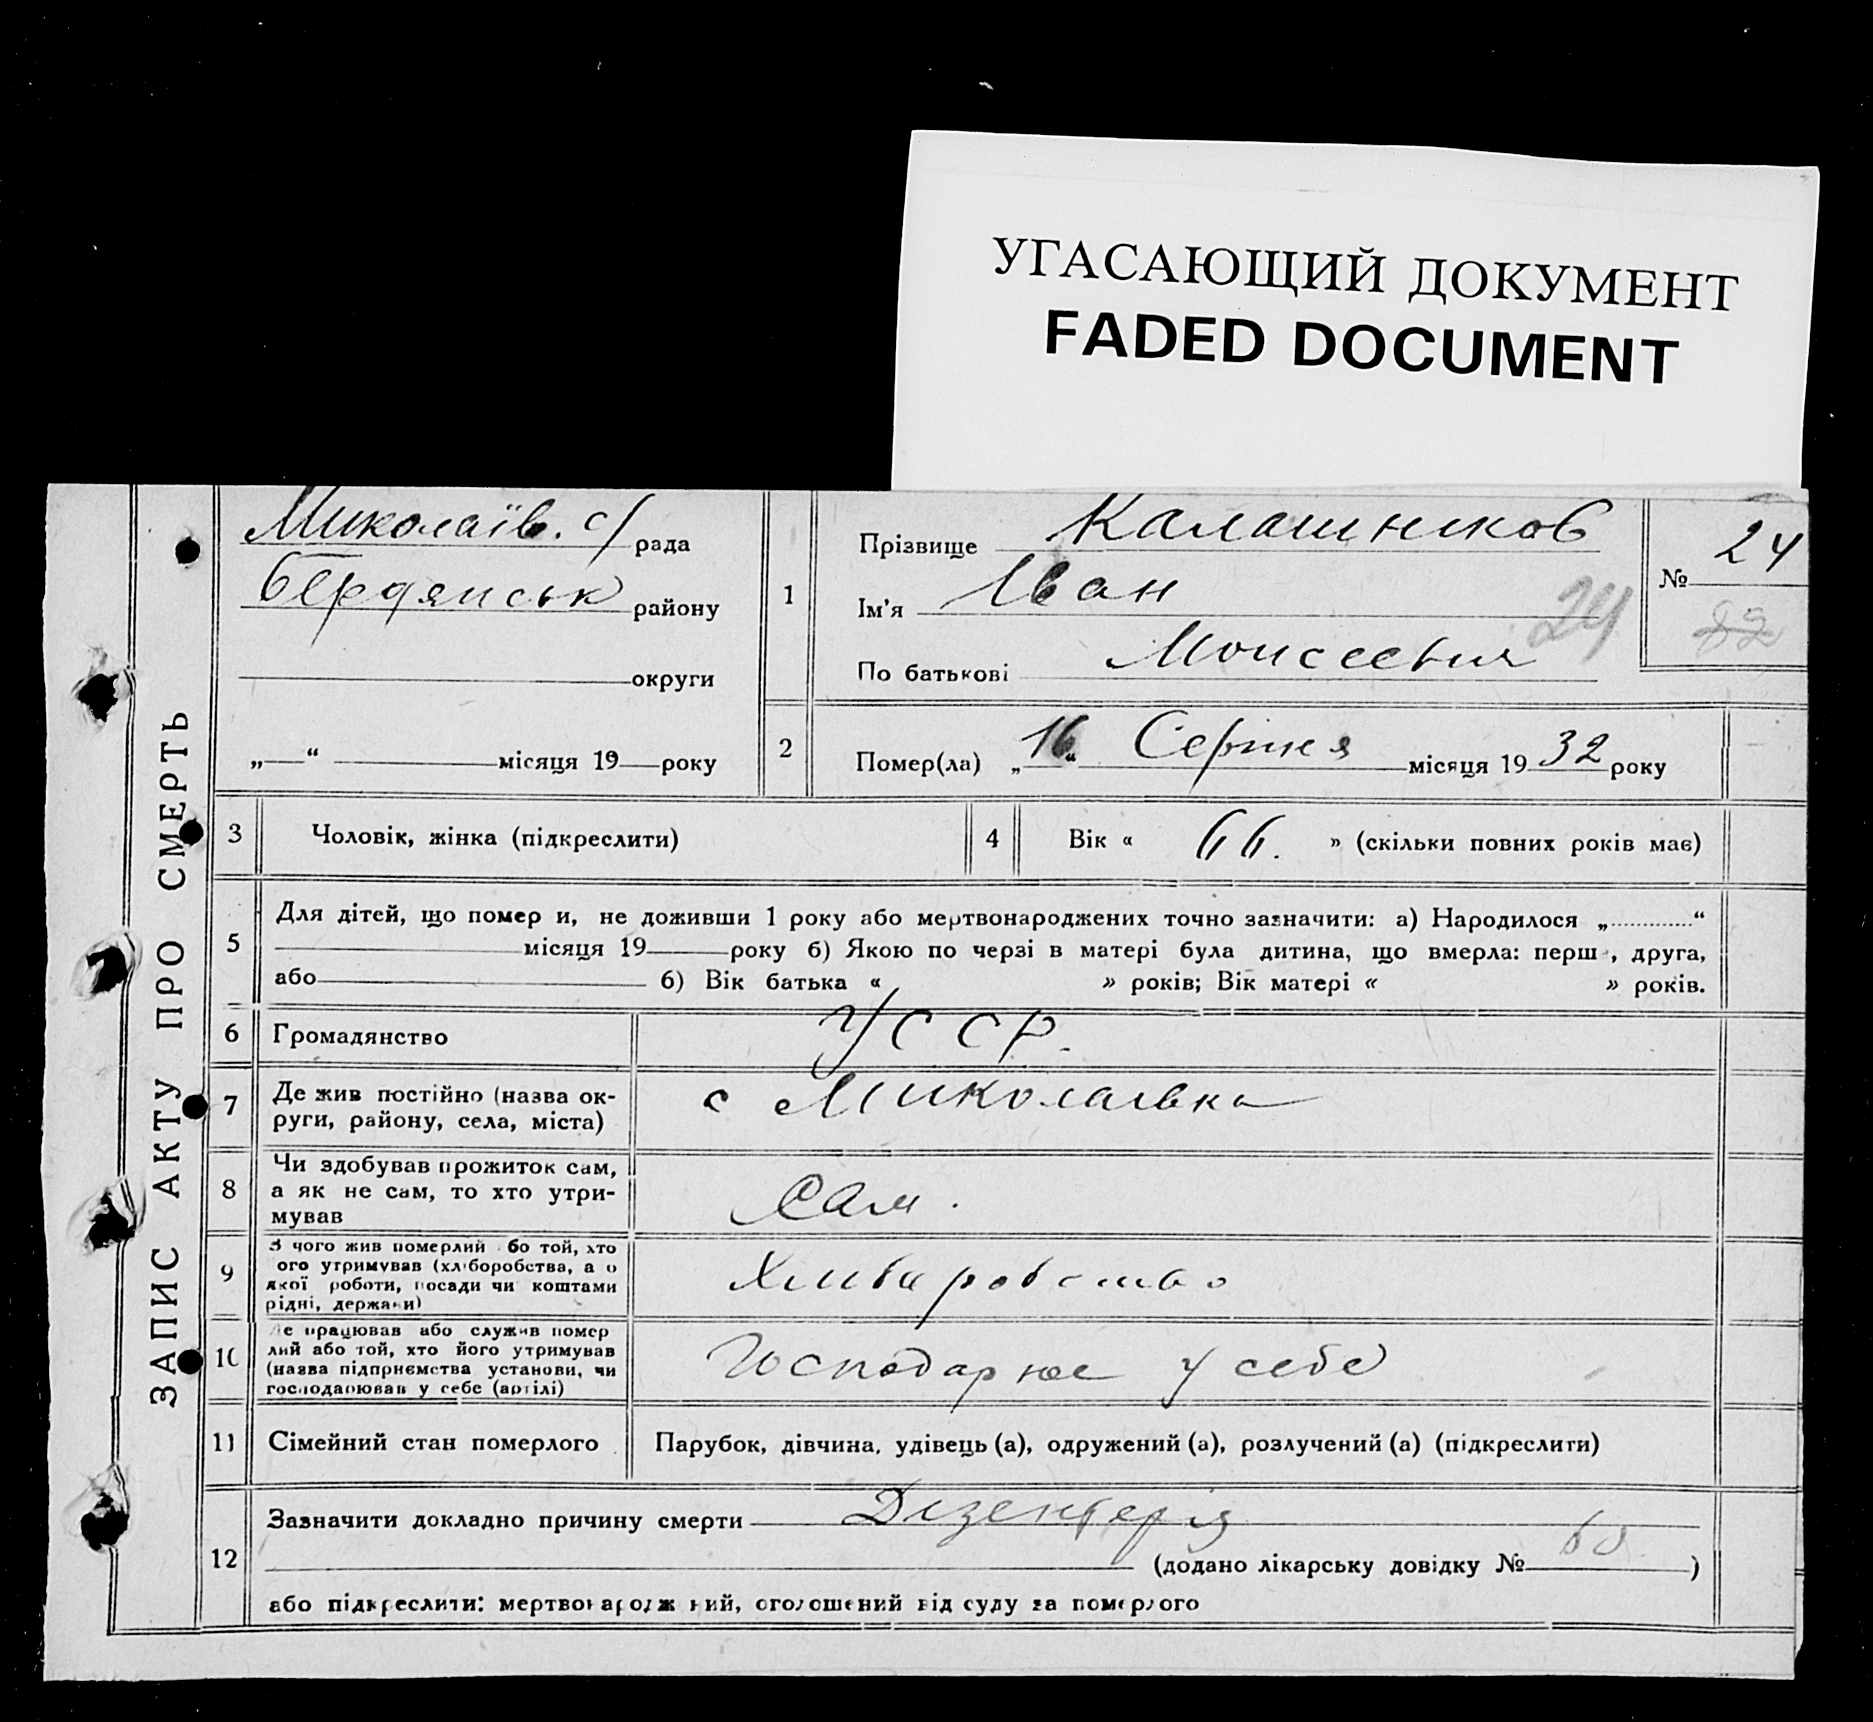 УГАСАЮЩИЙ ДОКУМЕНТ
FADED DOCUMENT
ЗАПИС АКТУ ПРО СМЕРТЬ
Миколаїв. с/ рада
Бердянськ району
округи
„ “ місяця 19 року
1
Прізвище Калашников
Ім'я Іван
По батькові Моисеевич
№ 24
24
82
2
Помер(ла) „16“ Серпня місяця 1932 року
3 Чоловік, жінка (підкреслити)
4 Вік « 66. » (скільки повних років має)
5
Для дітей, що помер и, не доживши 1 року або мертвонароджених точно зазначити: а) Народилося „ “
місяця 19 року б) Якою по черзі в матері була дитина, що вмерла: перш , друга,
або б) Вік батька « » років; Вік матері « » років.
6 Громадянство УССР.
7
Де жив постійно (назва ок-
руги, району, села, міста)
с Миколаівка
8
Чи здобував прожиток сам,
а як не сам, то хто утри-
мував
Сам.
9
З чого жив померлий бо той, хто
ого утримував (хліборобства, а о
якої роботи, посади чи коштами
рідні, держави)
Хлибаробство
10
Де працював або служив помер
лий або той, хто його утримував
(назва підприємства установи, чи
господарював у себе (артілі)
Господарюе у себе
11 Сімейний стан померлого Парубок, дівчина, удівець (а), одружений (а), розлучений (а) (підкреслити)
12
Зазначити докладно причину смерти Дізентерія
(додано лікарську довідку № )
або підкреслити: мертвонароджений, оголошений від суду за померлого